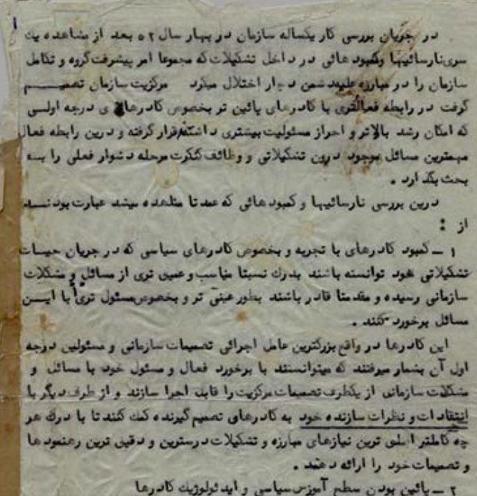 در جریان بررسی کار یکساله سازمان در بهار سال ۵۲ بعد از مشاهده یک
سری نارسائیها وکمبود هائی در داخل تشکیلات که مجموعا امر پیشرفت گروه و تکامل
سازمان را در مبارزه طبقه شمن دچار اختلال میکرد مرکزیت سازمان تصمیم
گرفت در رابطه فعالتری با کادرهای پائین تر بخصوص کادرهای درجه اولی
که امکان رشد بالاتر و احراز مسئولیت بیشتری داشتند قرار گرفته و درین رابطه فعال
مهمترین مسائل موجود درون تشکیلاتی و وظائف کنکرت مرحله دشوار فعلی را به
بحث بگذارد .
درین بررسی نارسائیها و کمبود هائی که عمدتا مشاهده میشد عبارت بودند
از :
۱ ــ کمبود کادرهای با تجربه و بخصوص کادرهای سیاسی که در جریان حیات
تشکیلاتی خود توانسته باشند بدرک نسبتا مناسب و عمیق تری از مسائل و مشکلات
سازمانی رسیده و مقدمتا قادر باشند بطور عینی تر و بخصوص مسئول تری با این
مسائل برخورد کنند .
این کادرها در واقع بزرگترین عامل اجرائی تصمیمات سازمانی و مسئولین درجه
اول آن بشمار میرفتند که میتوانستند با برخورد فعال و مسئول خود با مسائل و
مشکلات سازمانی از یکطرف تصمیمات مرکزیت را قابل اجرا سازند و از طرف دیگر با
انتقادات و نظرات سازنده خود به کادرهای تصمیم گیرنده کمک کنند تا با درک هر
چه کاملتر اصلی ترین نیازهای مبارزه و تشکیلات درسترین و دقیق ترین رهنمود ها
و تصمیمات خود را ارائه دهند .
۲ ــ پائین بودن سطح آموزش سیاسی و ایدئولوژیک کادرها